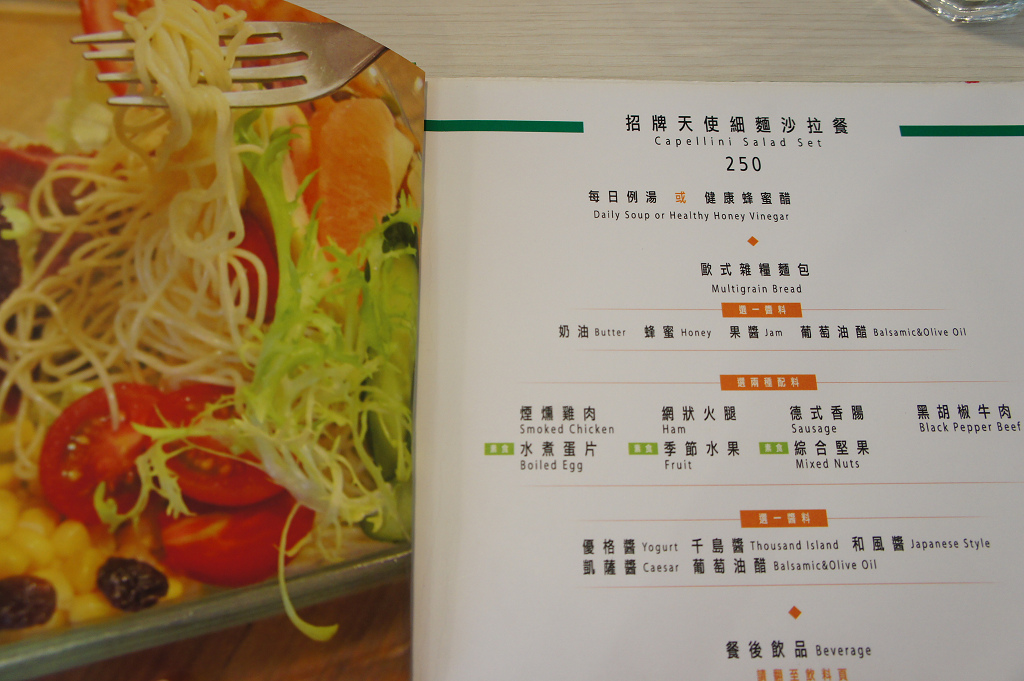 招牌天使細麵沙拉餐
Capellini Salad Set
250
每日例湯 或 健康蜂蜜醋
Daily Soup or Healthy Honey Vinegar
歐式雜糧麵包
Multigrain Bread
選一醬料
奶油 Butter 蜂蜜 Honey 果醬 Jam 葡萄油醋 Balsamic&Olive Oil
選兩種配料
煙燻雞肉 網狀火腿 德式香腸 黑胡椒牛肉
Smoked Chicken Ham Sausage Black Pepper Beef
素食 水煮蛋片 素食 季節水果 素食 綜合堅果
Boiled Egg Fruit Mixed Nuts
選一醬料
優格醬 Yogurt 千島醬 Thousand Island 和風醬 Japanese Style
凱薩醬 Caesar 葡萄油醋 Balsamic&Olive Oil
餐後飲品 Beverage
請翻至飲料頁